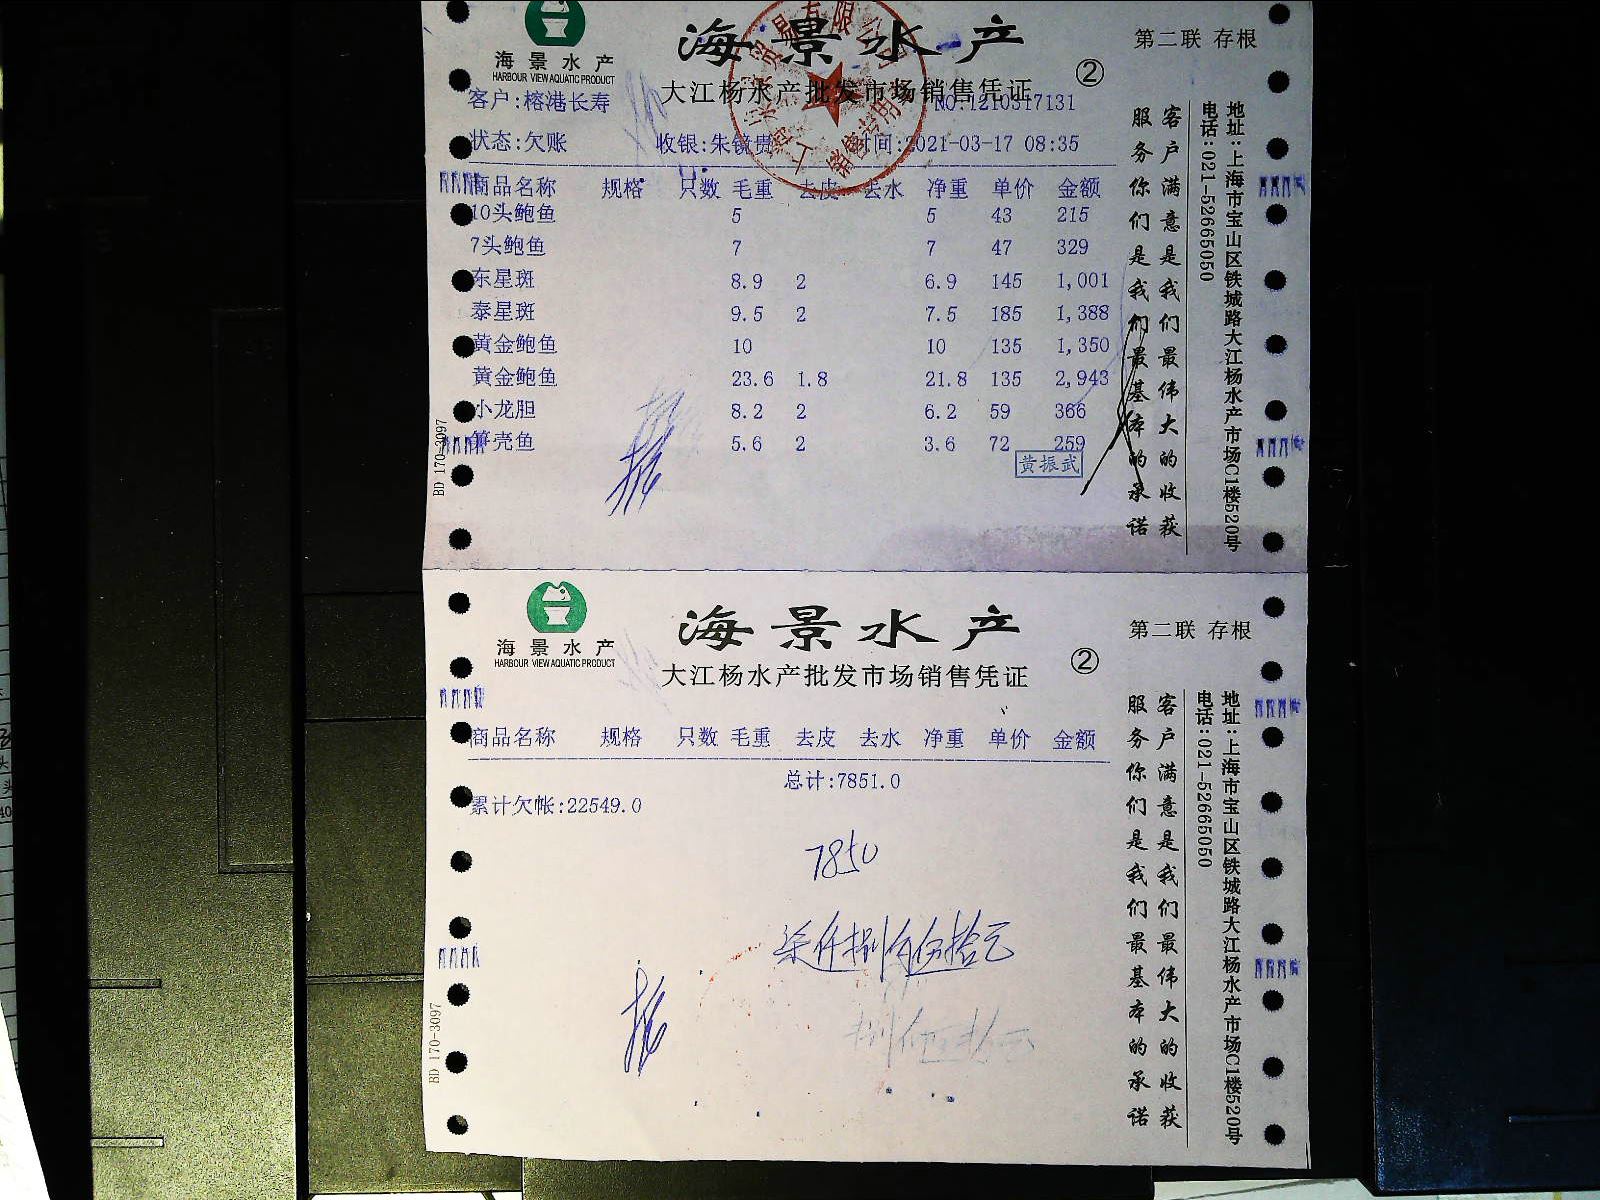 海景水产
HARBOUR VIEW AQUATIC PRODUCT
海景水产
第二联 存根
大江杨水产批发市场销售凭证
②
客户:榕港长寿
NO:1210317131
状态:欠账 收银:朱镜贵 时间:2021-03-17 08:35
商品名称 规格 只数 毛重 去皮 去水 净重 单价 金额
10头鲍鱼 5 5 43 215
7头鲍鱼 7 7 47 329
东星斑 8.9 2 6.9 145 1,001
泰星斑 9.5 2 7.5 185 1,388
黄金鲍鱼 10 10 135 1,350
黄金鲍鱼 23.6 1.8 21.8 135 2,943
小龙胆 8.2 2 6.2 59 366
笋壳鱼 5.6 2 3.6 72 259
黄振武
客户满意是我们最伟大的收获
服务你们是我们最基本的承诺
地址:上海市宝山区铁城路大江杨水产市场C1楼520号
电话:021-52665050
BD 170-3097
海景水产
HARBOUR VIEW AQUATIC PRODUCT
海景水产
第二联 存根
大江杨水产批发市场销售凭证
②
商品名称 规格 只数 毛重 去皮 去水 净重 单价 金额
总计:7851.0
累计欠帐:22549.0
7850
柒仟捌佰伍拾元
客户满意是我们最伟大的收获
服务你们是我们最基本的承诺
地址:上海市宝山区铁城路大江杨水产市场C1楼520号
电话:021-52665050
BD 170-3097